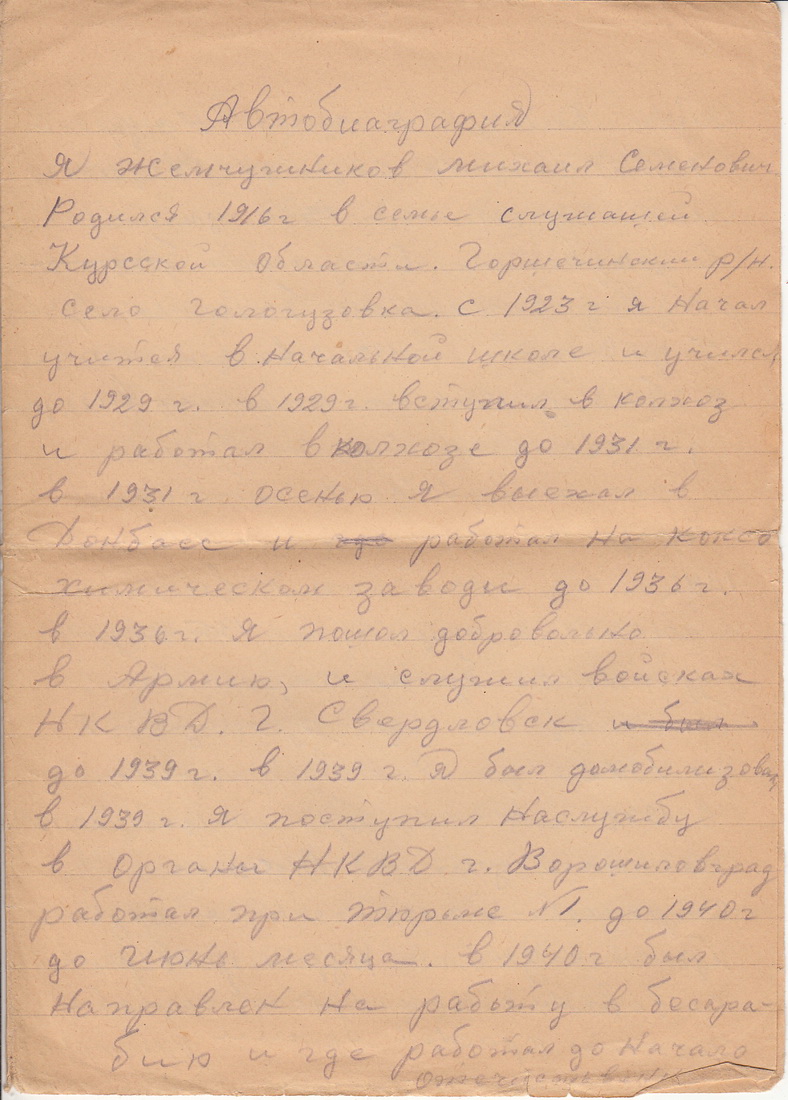 Автобиаграфия
Я Жемчужников Михаил Семенович
Родился 1916 г в семье служащей
Курской Области. Горшечинский р/н.
село Гологузовка. С 1923 г я Начал
учится в Начальной школе и учился
до 1929 г. в 1929 г. вступил в колхоз
и работал в колхозе до 1931 г.
в 1931 г. осенью я выехал в
Донбасс и работал на коксо
химическом заводи до 1936 г.
в 1936 г. Я пошол добровольно
в Армию, и служил войсках
НКВД. Г. Свердловск и был
до 1939 г. в 1939 г. Я был домобилизован,
в 1939 г. Я поступил Наслужбу
в Органы НКВД г. Ворошиловград
работал при тюрьме №1. до 1940 г
до Июнь месяца. в 1940 г был
Направлен На работу в бесара-
бию и где работал до Начала
отечиствен